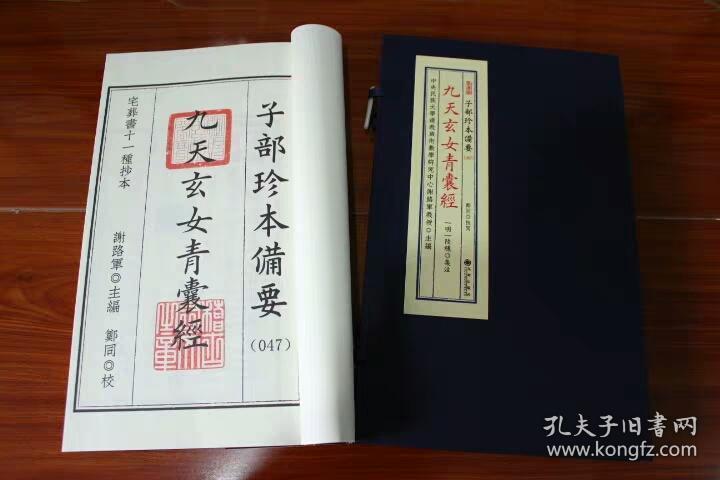 子部珍本備要
(047)
九天玄女青囊經
宅葬書十一種抄本
謝路軍◎主編
鄭同◎校
子部珍本備要
中央民族大學道教與術數學研究中心謝路軍教授◎主編
九天玄女青囊經
鄭同◎校
孔夫子旧书网
www.kongfz.com